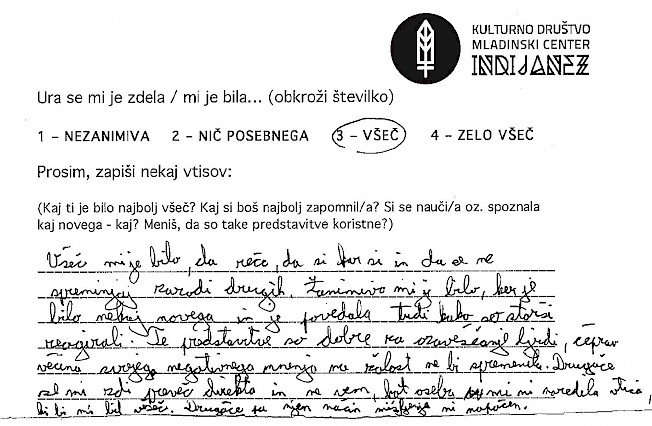 KULTURNO DRUŠTVO
MLADINSKI CENTER
INDIJANEZ
Ura se mi je zdela / mi je bila... (obkroži številko)
1 – NEZANIMIVA 2 – NIČ POSEBNEGA 3 – VŠEČ 4 – ZELO VŠEČ
Prosim, zapiši nekaj vtisov:
(Kaj ti je bilo najbolj všeč? Kaj si boš najbolj zapomnil/a? Si se nauči/a oz. spoznala
kaj novega - kaj? Meniš, da so take predstavitve koristne?)
Všeč mi je bilo, da reče, da si kar si in da se ne
spreminjaj zarodi drugih. Zanimivo mi je bilo, ker je
bilo nekaj novega in je povedala tudi kako so starši
reagirali. Te predstavitve so dobre za ozaveščanje ljudi, čeprav
večina svojega negativnega mnenja na žalost ne bi spremenila. Drugače
se mi zdi preveč direktna in ne vem, kot oseba mi ni naredila vtisa,
ki bi mi bil všeč. Drugače pa njen način mišljenja ni napačen.